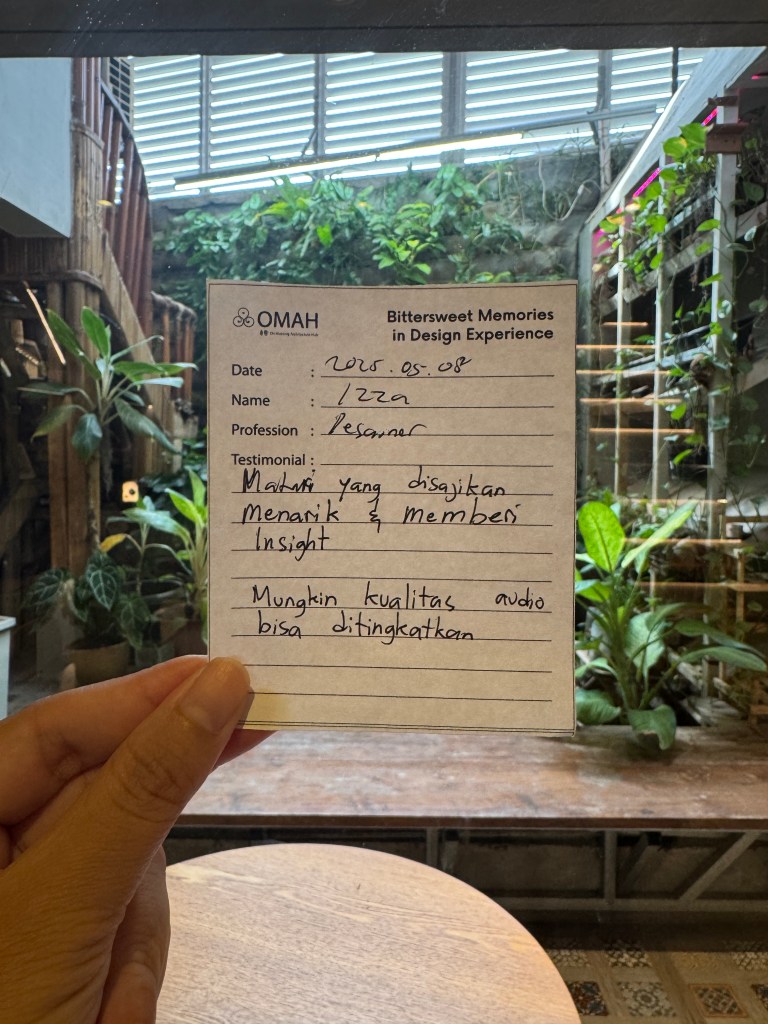 OMAH
Bittersweet Memories
in Design Experience
Date : 2025.05.08
Name : Izza
Profession : Desainer
Testimonial :
Materi yang disajikan
Menarik & memberi
Insight
Mungkin kualitas audio
bisa ditingkatkan